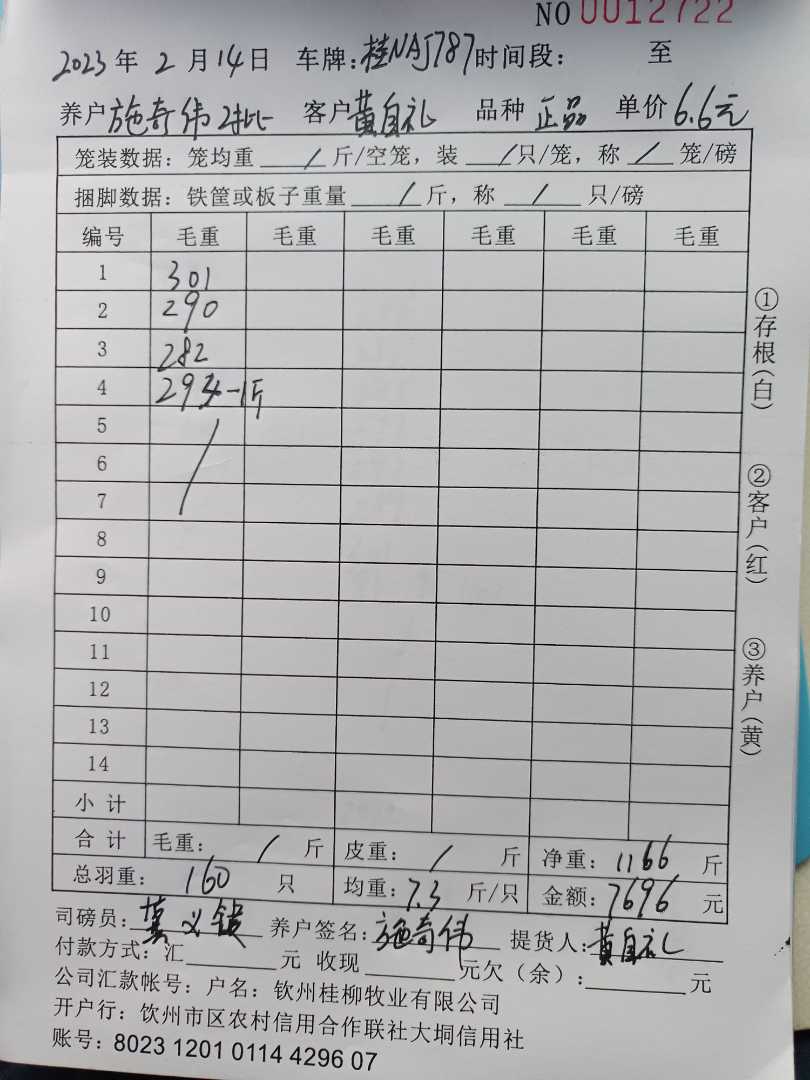 NO 0012722
2023年 2 月 14日 车牌:桂NAJ787时间段: 至
养户施奇伟2批 客户黄自礼 品种 正品 单价6.6元
笼装数据: 笼均重 / 斤/空笼, 装 /只/笼, 称 / 笼/磅
捆脚数据: 铁筐或板子重量 / 斤, 称 / 只/磅
编号 毛重 毛重 毛重 毛重 毛重 毛重
1 301
2 290
3 282
4 294-1斤
5
6
7
8
9
10
11
12
13
14
小 计
合 计 毛重: / 斤 皮重: / 斤 净重: 1166 斤
总羽重: 160 只 均重: 7.3 斤/只 金额: 7696 元
司磅员: 义 养户签名: 施奇伟 提货人: 黄自礼
付款方式: 汇 元 收现 元欠(余): 元
公司汇款帐号: 户名: 钦州桂柳牧业有限公司
开户行: 钦州市区农村信用合作联社大垌信用社
账号: 8023 1201 0114 4296 07
①存根(白)
②客户(红)
③养户(黄)